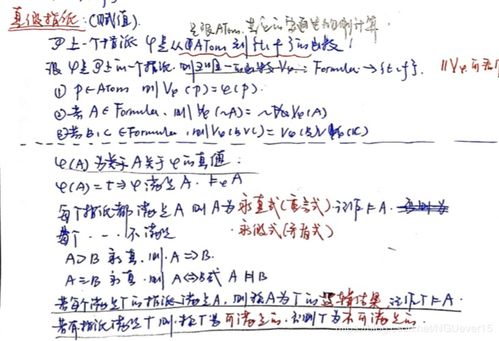 真值指派：(赋值).
P上一个指派φ是从ATom到{t,f}的函数！
设φ是P上的一个指派, 则 Vφ: Formuler → {t,f}.
① p∈Atom 则 Vφ(p)=φ(p).
②若A∈Formuler, 则Vφ(~A)= ~Vφ(A)
③若B,C∈Formuler, 则Vφ(B∨C)= Vφ(B)∨Vφ(C)
φ(A)为关于A关于φ的真值.
φ(A)=t⇒φ满足A. ⊨φA
每个指派都满足A则A为永真式(重言式). 记作⊨A.
每个···不满足 永假式(矛盾式)
A⊃B 永真, 则 A⇒B.
A≡B 永真, 则 A⇔B或 A|=|B
若每个满足T的指派满足A, 则称A为T的逻辑结果, 记作T⊨A.
若有指派满足T则, 称T为可满足的, 否则T为不可满足的.